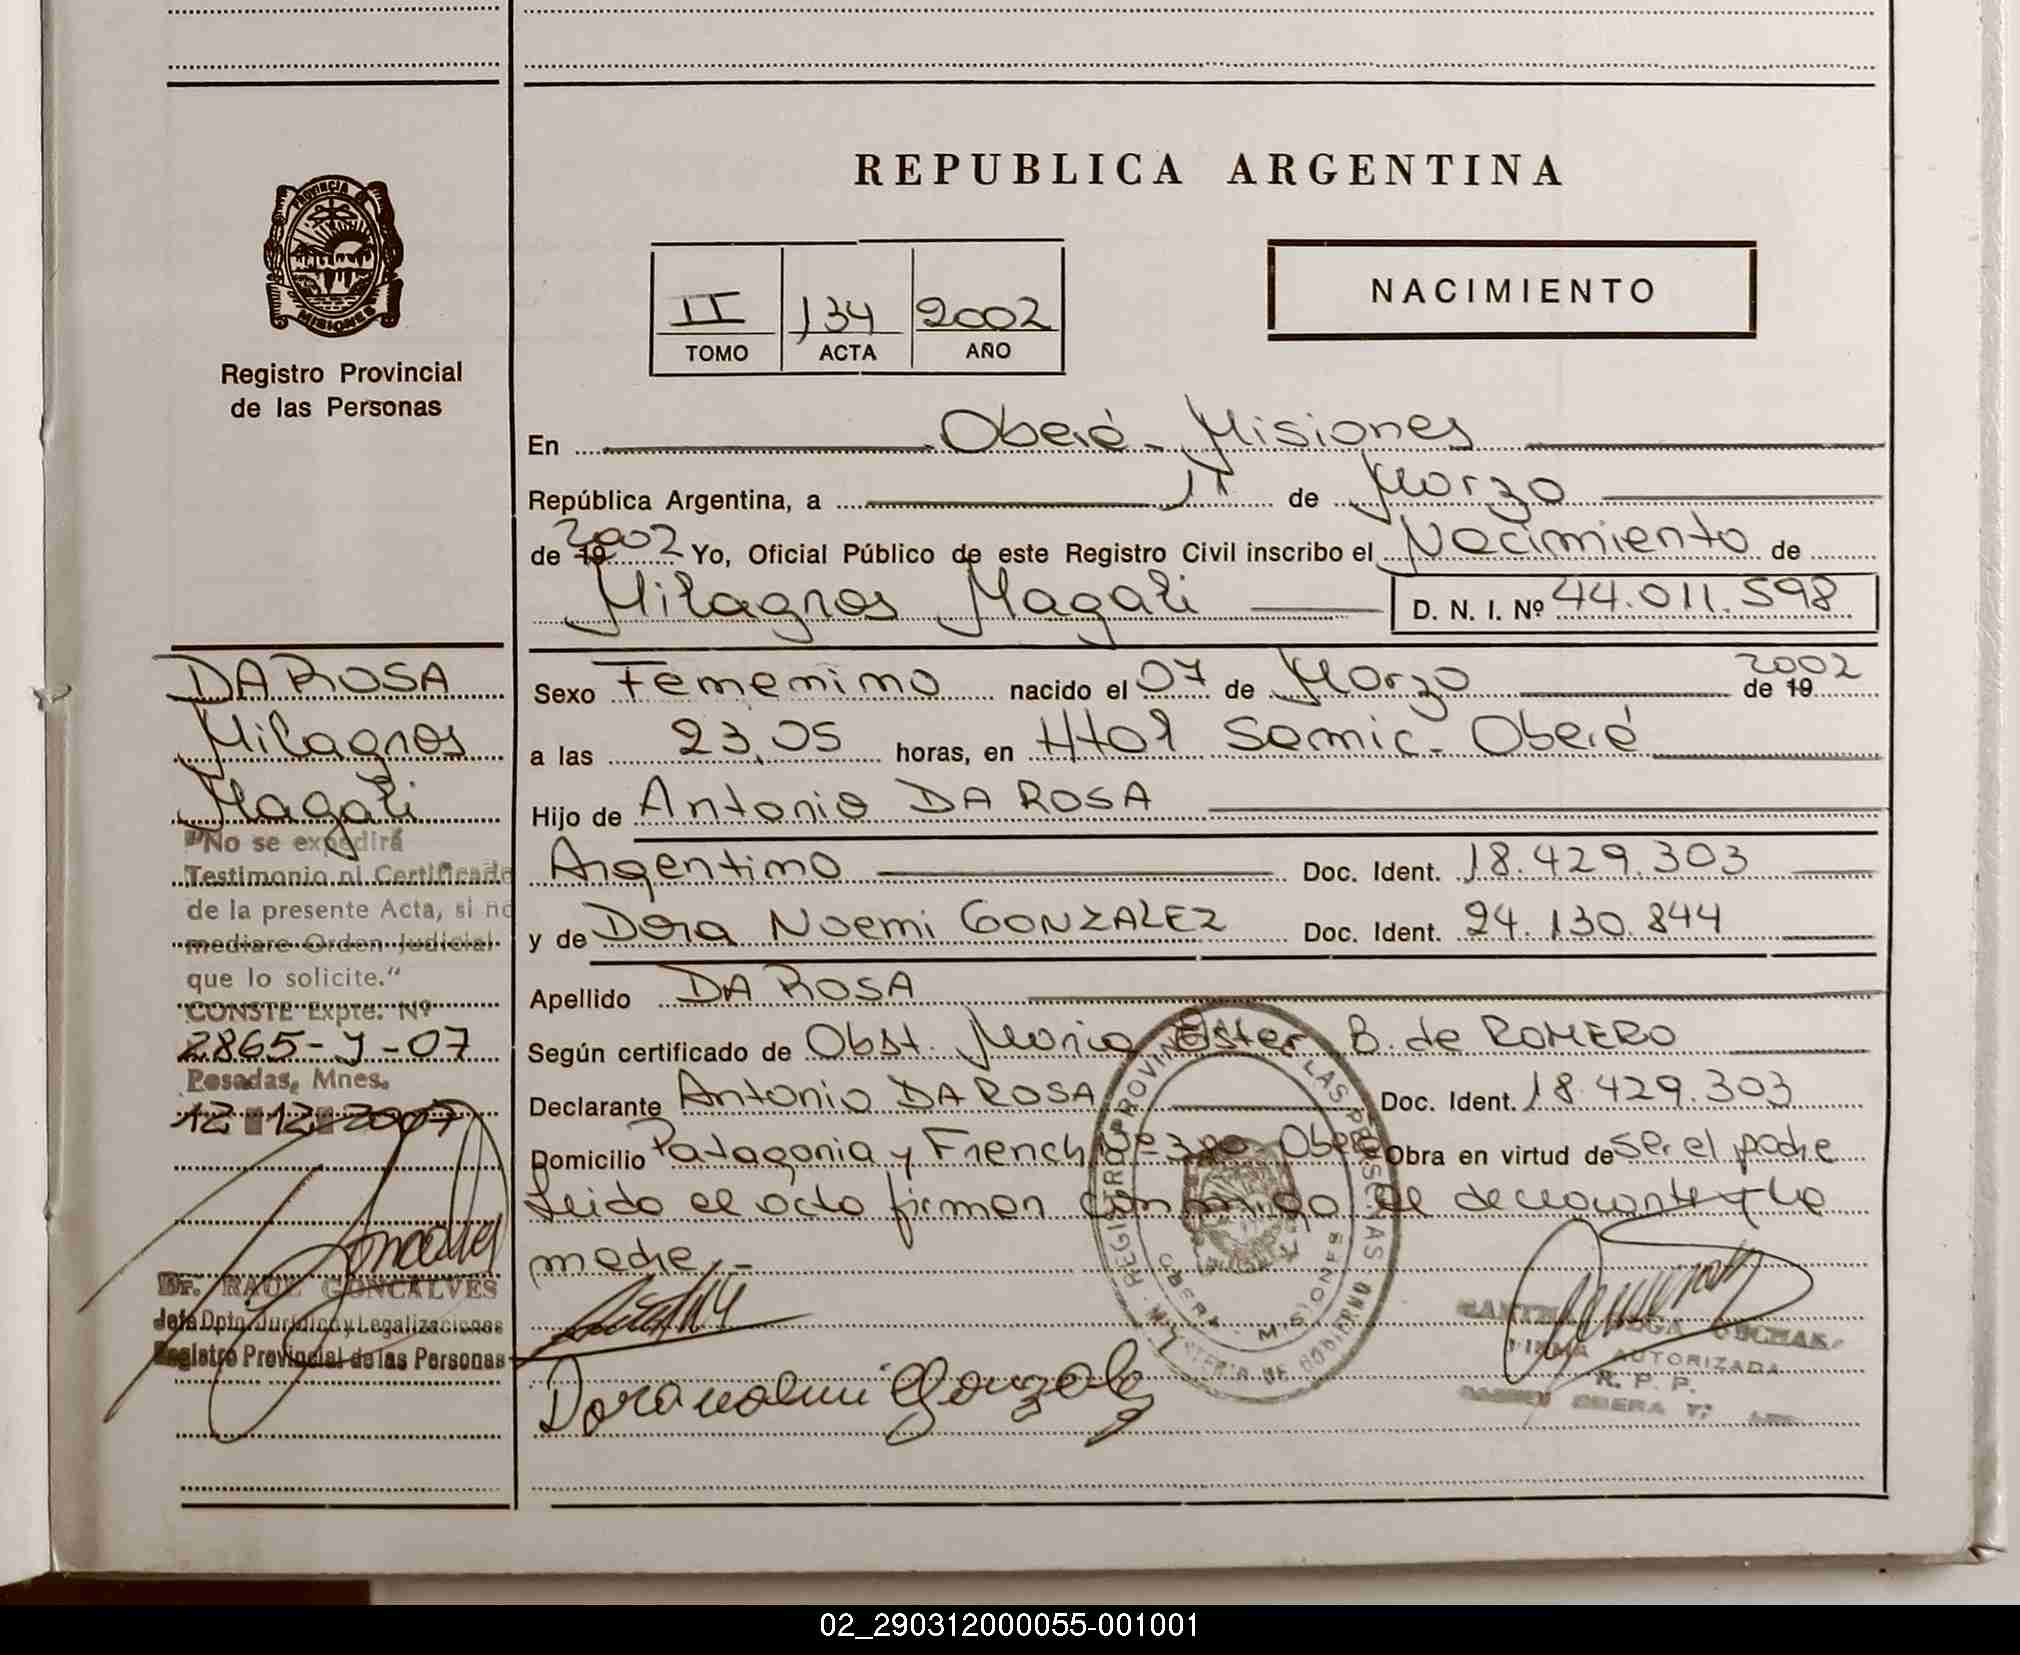 REPUBLICA ARGENTINA
PROVINCIA DE
MISIONES
Registro Provincial
de las Personas
II 134 2002
TOMO ACTA AÑO
NACIMIENTO
En Oberá - Misiones
República Argentina, a 11 de Marzo
de 19 2002 Yo, Oficial Público de este Registro Civil inscribo el Nacimiento de
Milagros Magali D. N. I. Nº 44.011.598
DA ROSA
Milagros
Magali
"No se expedirá
Testimonio ni Certificado
de la presente Acta, si no
mediare Orden Judicial
que lo solicite."
CONSTE Expte. Nº
2865-Y-07
Posadas, Mnes.
12 12 2007
Dr. RAUL GONCALVES
Jefe Dpto. Jurídico y Legalizaciones
Registro Provincial de las Personas
Sexo Femenino nacido el 07 de Marzo de 19 2002
a las 23,05 horas, en Htal Samic - Oberá
Hijo de Antonio DA ROSA
Argentino Doc. Ident. 18.429.303
y de Dora Noemi GONZALEZ Doc. Ident. 24.130.844
Apellido DA ROSA
Según certificado de Obst. Maria Ester B. de ROMERO
Declarante Antonio DA ROSA Doc. Ident. 18.429.303
Domicilio Patagonia y French Nº 320 Oberá Obra en virtud de ser el padre
Leido el acta firman conmigo el declarante y la
madre.-
REGISTRO PROVINCIAL DE LAS PERSONAS
MINISTERIO DE GOBIERNO
OBERA - MISIONES
Dora noemi Gonzalez
FIRMA AUTORIZADA
R. P. P.
OBERA
02_290312000055-001001